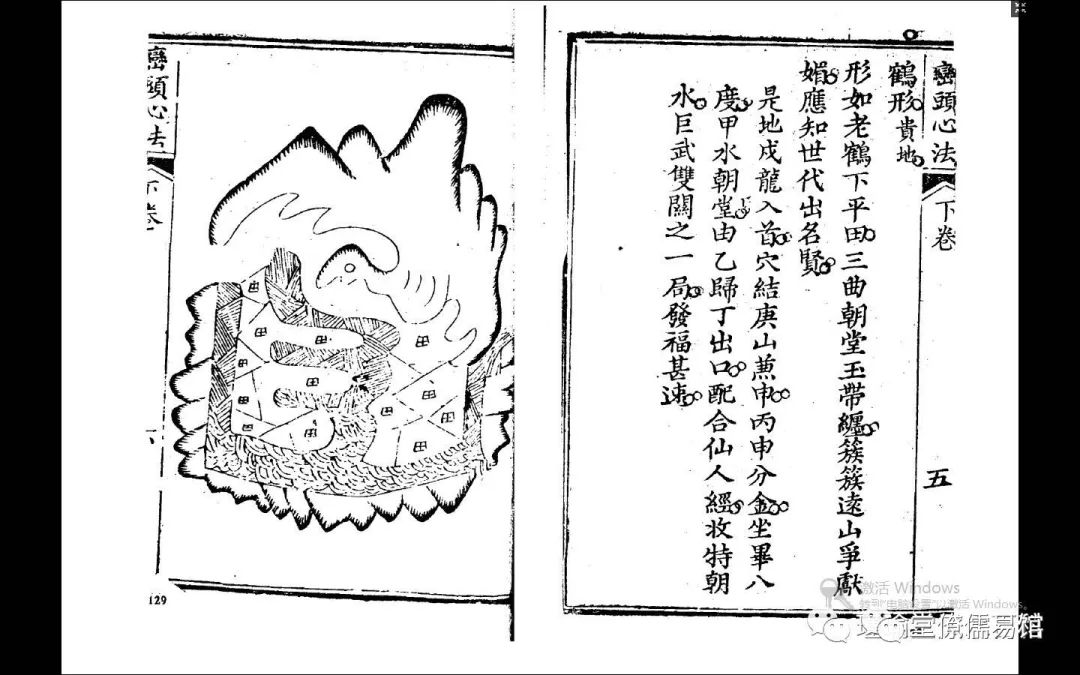 巒頭心法
下卷
五
鶴形貴地
形如老鶴下平田三曲朝堂玉帶纏簇簇遠山爭獻
媚應知世代出名賢
是地戌龍入首穴結庚山兼申丙申分金坐畢八
度甲水朝堂由乙歸丁出口配合仙人經收特朝
水巨武雙關之一局發福甚速
巒頭心法
下卷
田
田
田
田
田
田
田
田
田
田
田
田
田
129
激活 Windows
转到"电脑设置"以激活 Windows。
堂儒易馆